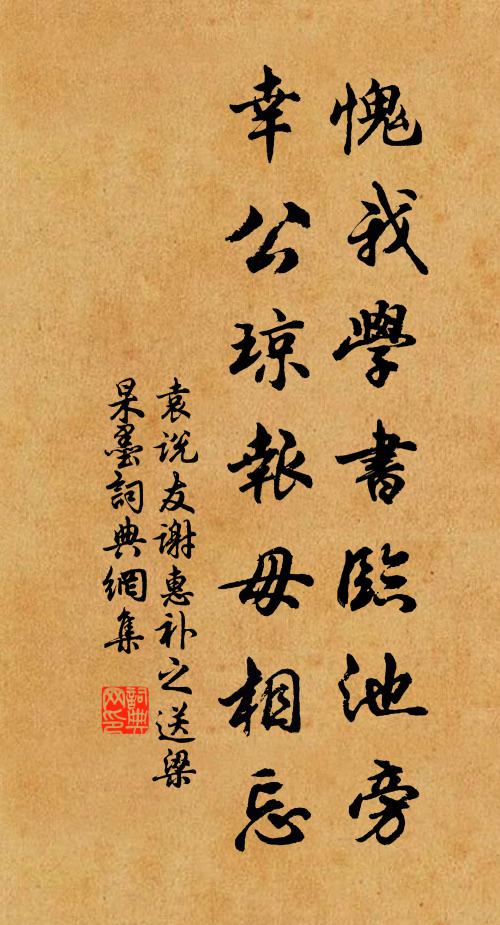 愧我學書臨池旁
幸公琼報毋相忘
袁説友謝惠补之送梁
杲墨詞典網集
詞典網印